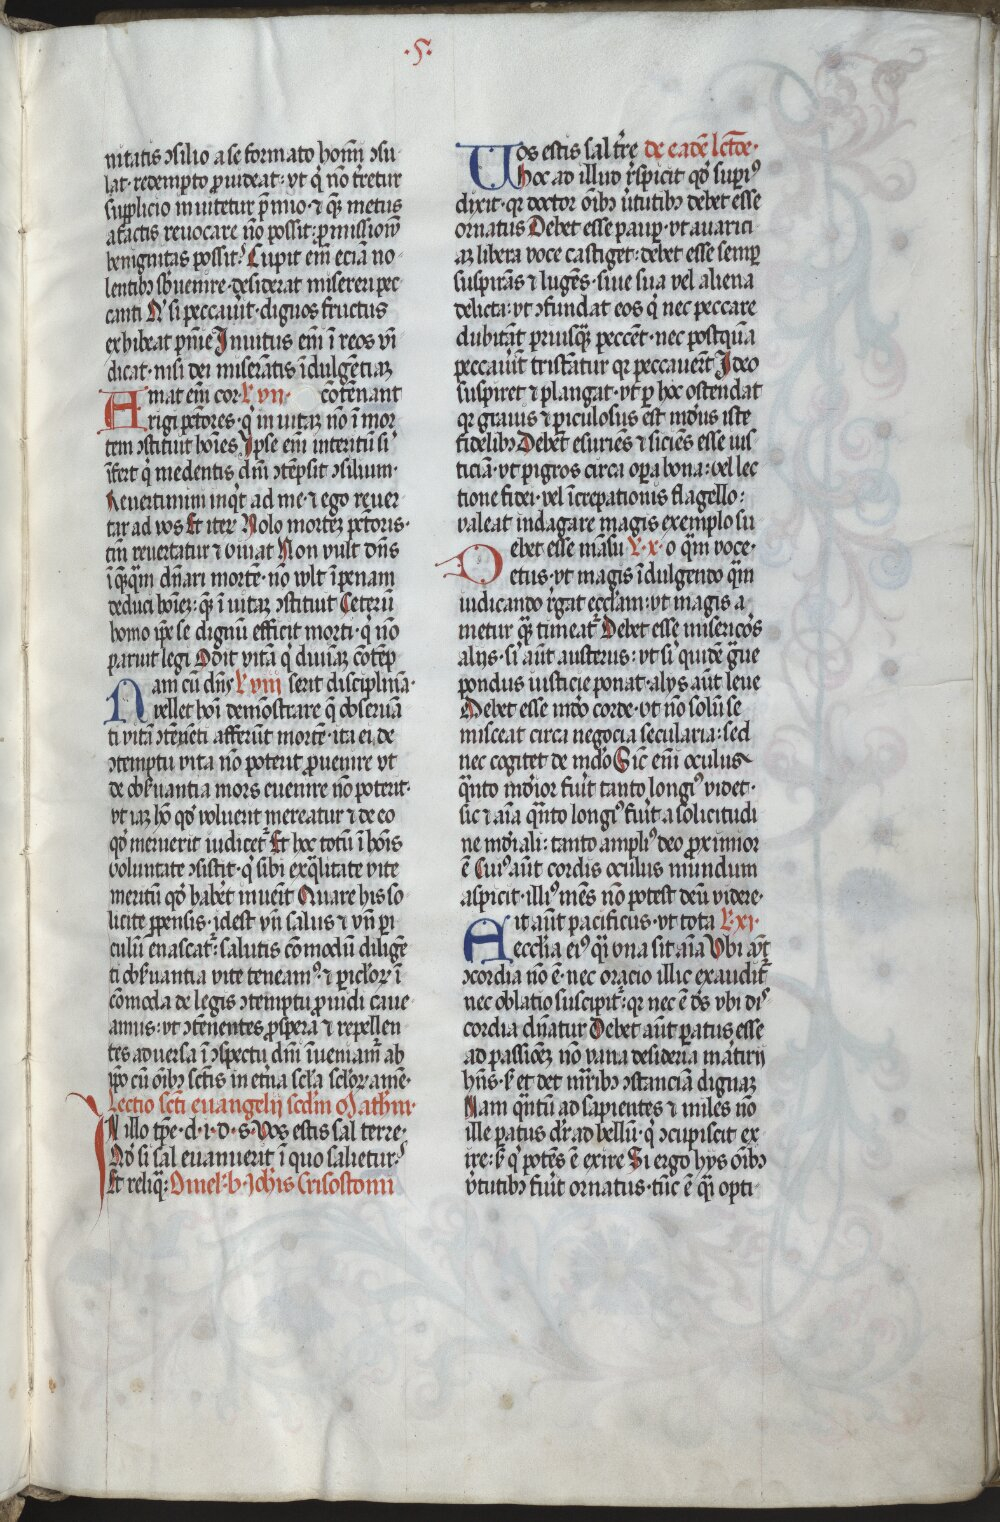 ·5·
nitatis ↄsilio a se formato hom̄i ↄsu
lat· redempto p̄uideat· vt q̄ nō t̄retur
supplicio inuitetur p̄mio· ⁊ qȝ metus
afactis reuocare nō possit: p̄missionū
benignitas possit· Cupit em̄ eciā no
lentibȝ sb̄uenire· desiderat misereri pec
canti Nͥ si peccauit· dignos fructus
exhibeat pn̄ie Inuitus em̄ ī reos vī
dicat· nisi dei miserātis īdulgētiaȝ
Amat em̄ cor Lvii· cōtēnant
rigi pctōres· q̄ in uitaȝ nō ī mor
tem ↄstituit hoīes Ipse em̄ interitū si
īfert q̄ medentis dn̄i ↄtēpsit ↄsilium·
Reuertimini inqͥt ad me· ⁊ ego reuer
tar ad vos Et iteȝ Nolo morteȝ pctōris·
tm̄ reuertatur ⁊ viuat Non vult dn̄s
īqȝqm̄ dn̄ari mortē· nō wlt ī penam
deduci hoīeȝ: qȝ ī uitaȝ ↄstituit Ceterū
homo ip̄e se dignū efficit morti· q̄ nō
paruit legi Odit vitā q̄ diuinā cōtēp
Nam cū dn̄s Lviii serit disciplinā·
vellet hoī demōstrare q̄ obseruā
ti vitā ↄtēnēti afferūt mortē· ita ei de
ↄtemptu vita nō poterit p̄uenire vt
de obs̄uantia mors euenire nō poterit·
vt iaȝ hō qd̄ voluerit mereatur ⁊ de eo
qd̄ meruerit iudicet᷑ Et hoc totū ī hoīs
voluntate ↄsistit· q̄ sibi ex q̄litate vite
meritū qd̄ habet inuēit Quare his so
licite p̄pensis· idest vn̄ salus ⁊ vn̄ pi
culū enascat᷑: salutis cōmodū diligē
ti obs̄uantia vite teneamꝰ· ⁊ pic̄loȝ ī
cōmoda de legis ↄtemptu p̄uidi caue
amus: vt ↄtēnentes p̄spera ⁊ repellen
tes aduersa ī ↄspectu dn̄i īueniam᷑ ab
ip̄o cū oībȝ sctīs in et̄na scl̄a scl̄oȝ amē·
Lectio sctī euangelij scdm̄ Mathm̄·
IN illo tp̄e· d· i· d· s· Vos estis sal terre·
Qd̄ si sal euanuerit ī quo salietur?
Et reliqͣ: Omel· b· Ioh̄is Crisostomi
Vos estis sal t̄re de eadē lctōe·
hoc ad illud r̄spicit qd̄ supiꝰ
dixit· qr doctor oībȝ v̄tutibȝ debet esse
ornatus Debet esse paup̄· vt auarici
aȝ libera voce castiget: debet esse semp̄
suspirās ⁊ lugēs· siue sua vel aliena
delicta: vt ↄfundat eos q̄ nec peccare
dubitāt priusqȝ peccēt· nec postquā
peccauīt tristātur qr peccauerīt Ideo
suspiret ⁊ plangat· vt p̄ hoc ostendat
qr grauis ⁊ piculosus est mūdus iste
fidelibȝ Debet esuriēs ⁊ siciēs esse ius
ticiā· vt pigros circa opa bona: vel lec
tione fidei· vel īcrepationis flagello:
valeat indagare magis exemplo su
Debet esse māsu Lx· o qm̄ voce·
etus· vt magis īdulgendo qm̄
iudicando r̄gat eccl̄iam: vt magis a
metur qȝ timeat᷑ Debet esse misericōs
alijs· si aūt austerus: vt siͥ quidē ḡue
pondus iusticie ponat· alijs aūt leue
Debet esse mūdo corde· vt nō solū se
misceat circa negocia secularia: sed
nec cogitet de mūdo Sic em̄ oculus
qn̄to mūdior fuīt tanto longiꝰ videt·
sic ⁊ aīa qn̄to longiꝰ fuīt a solicitudi
ne mūdiali: tanto ampliꝰ deo p̄ximior
ē Cuiꝰ aūt cordis oculus mundum
aspicit· illiꝰ mēs nō potest deū videre·
Ait aūt pacificus· vt tota Lxi·
eccl̄ia eiꝰ qͣi vna sit aīa Vbi aūt
ↄcordia nō ē· nec oracio illic exaudit᷑
nec oblatio suscipit᷑: qr nec ē ds̄ vbi disͦ
cordia dn̄atur Debet aūt paratus esse
ad passiōeȝ nō vana desideria m̄artirij
hn̄s· s̄ et det nr̄ribȝ ↄstanciā dignaȝ
Nam qn̄tū ad sapientes ⁊ miles nō
ille paratus dr̄ ad bellū· q̄ ↄcupiscit ex
ire: s̄ q̄ potēs ē exire Si ergo hijs oībȝ
v̄tutibȝ fuīt ornatus· tūc ē qͣi opti